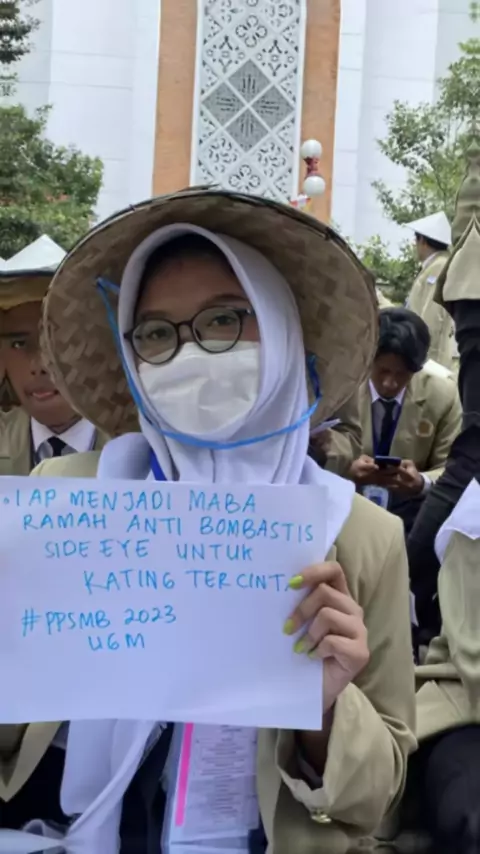 .IAP MENJADI MABA
RAMAH ANTI BOMBASTIS
SIDE EYE UNTUK
KATING TERCINTA
#PPSMB 2023
UGM